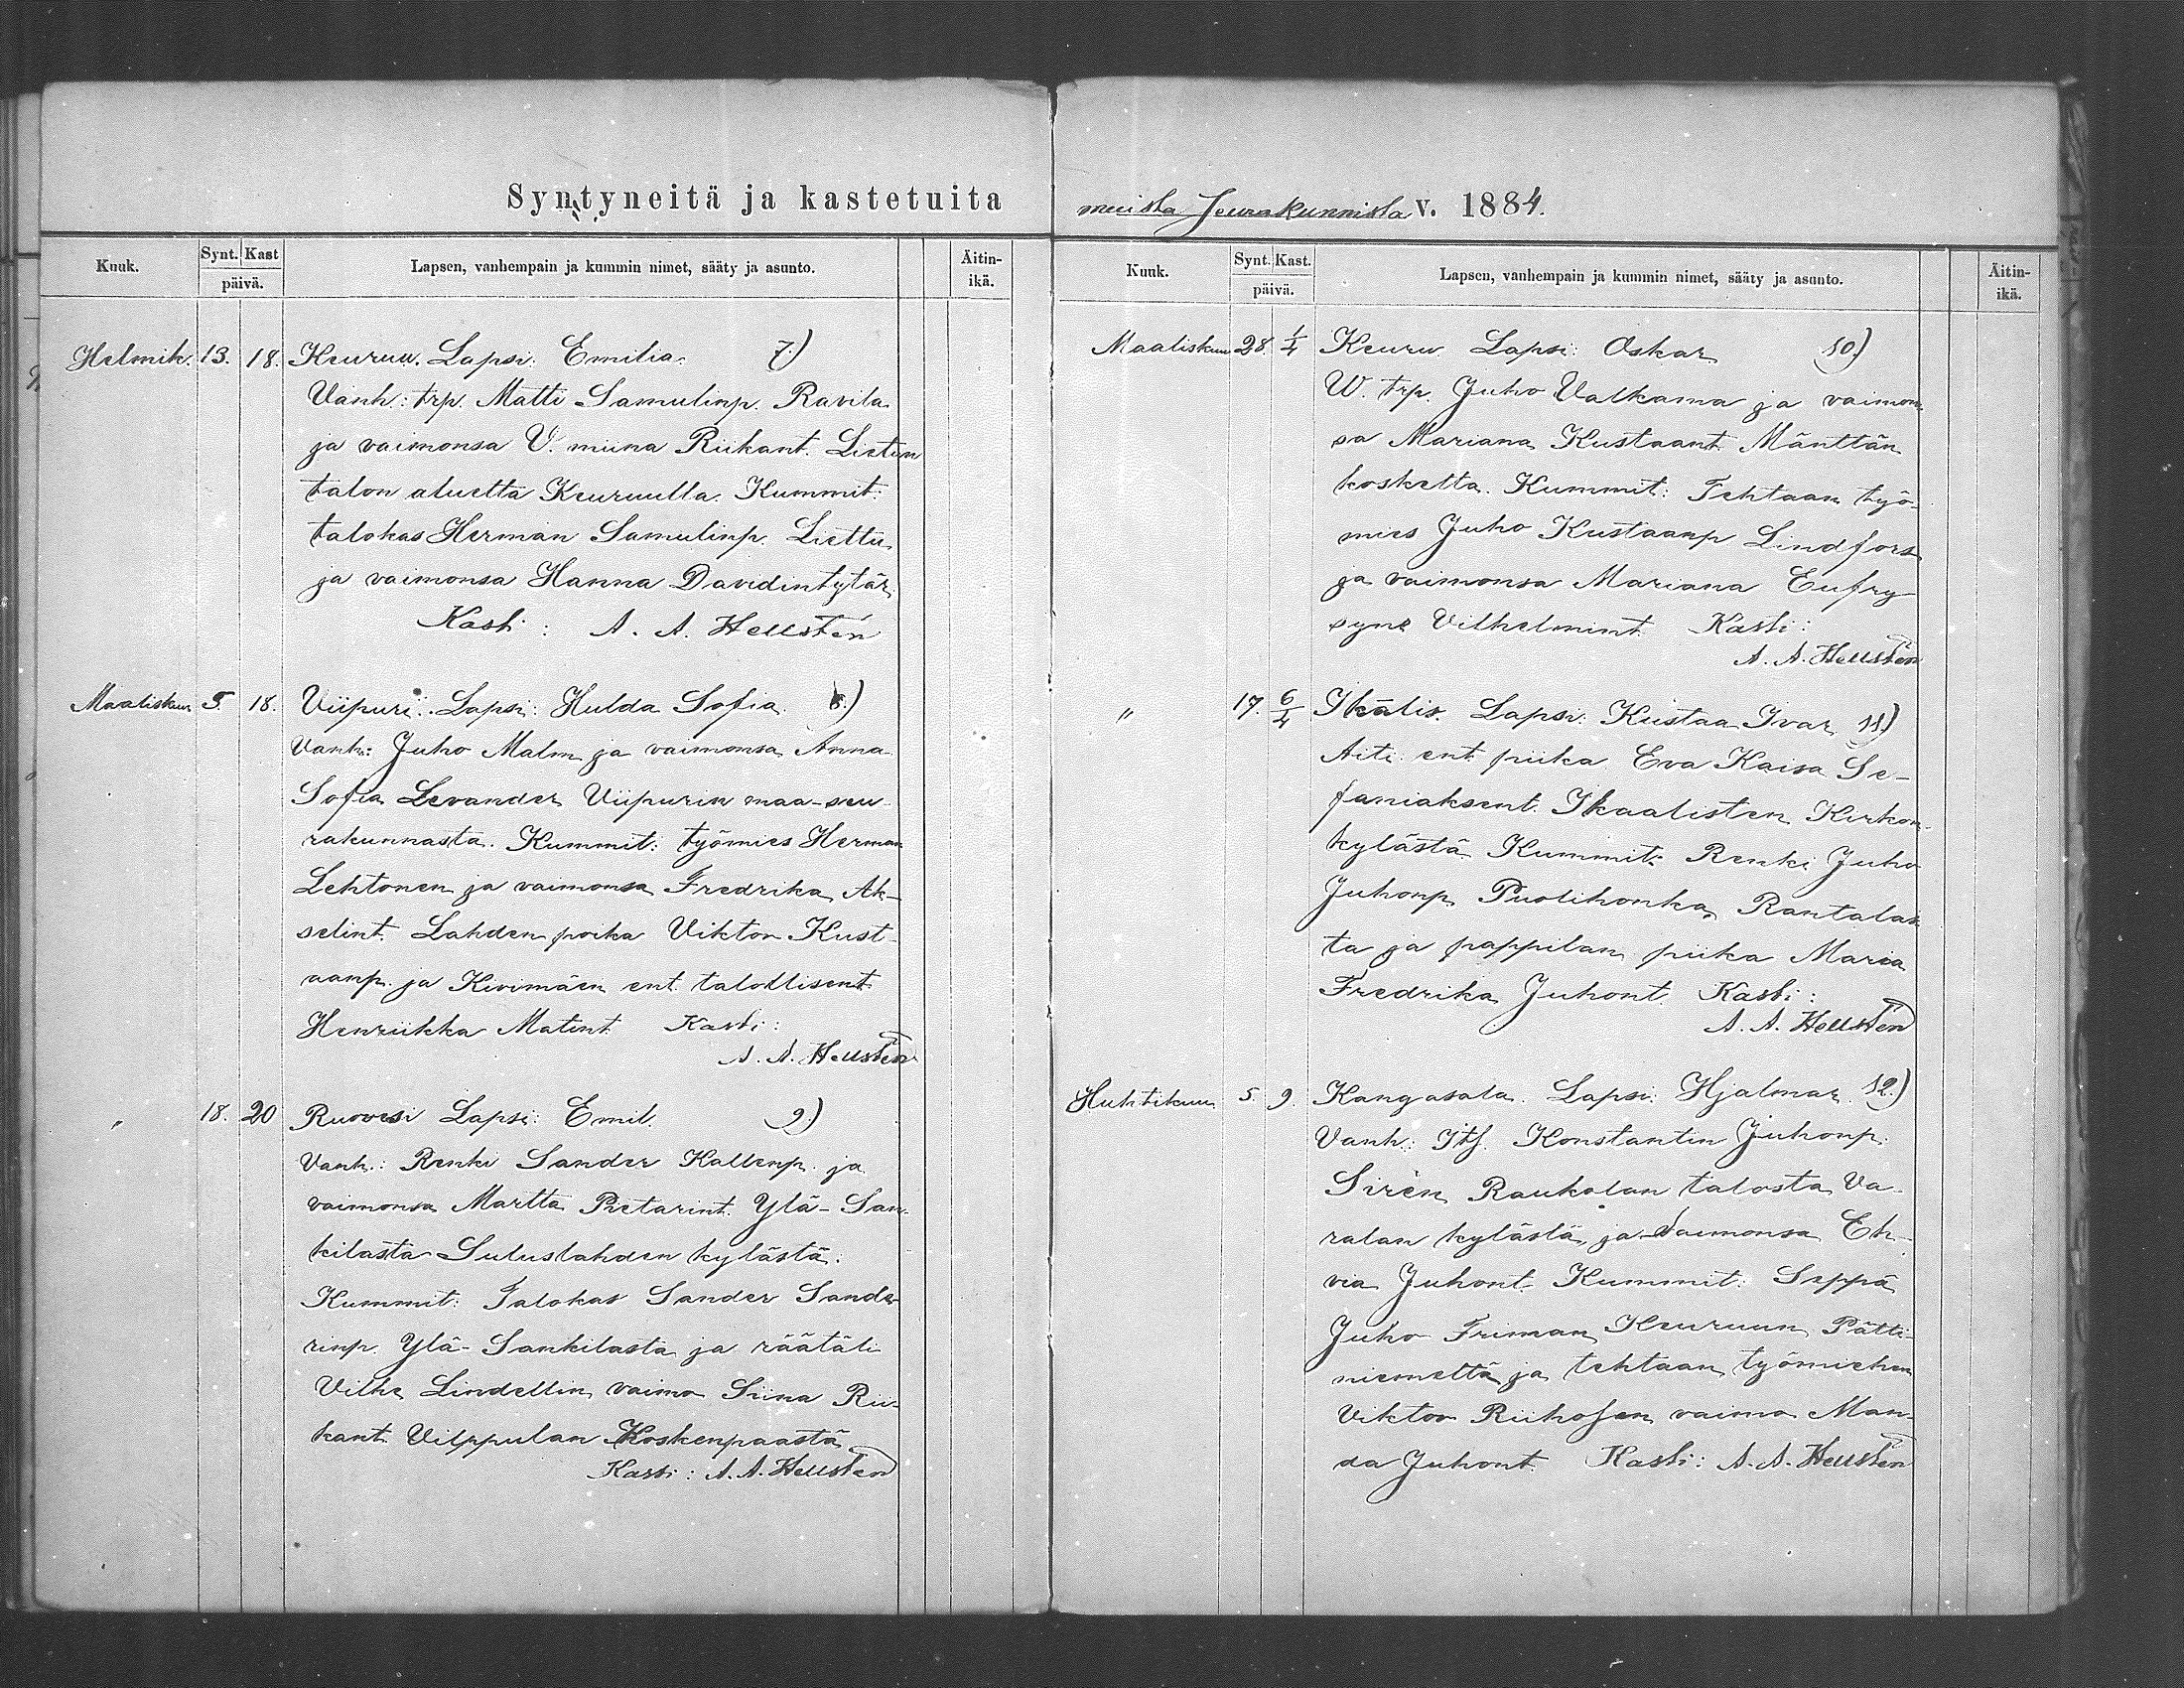 Syntyneitä ja kastetuita
Kuuk. Synt. Kast päivä. Lapsen, vanhempain ja kummin nimet, sääty ja asunto. Äitin-ikä.
Helmik. 13. 18. Keuruu. Lapsi: Emilia. 7.)
Vanh: trp. Matti Samulinp. Ravila
ja vaimonsa V. miina Riikant. Lietun
talon aluetta Keuruulla. Kummit:
talokas Herman Samulinp. Liettu
ja vaimonsa Hanna Davidintytär
Kasti: A. A. Hellstén
Maaliskuu 5. 18. Viipuri. Lapsi: Hulda Sofia. 8.)
Vanh: Juho Malm ja vaimonsa Anna
Sofia Levander Viipurin maa-seu
rakunnasta. Kummit: työmies Herman
Lehtonen ja vaimonsa Fredrika Ak-
selint. Lahden poika Viktor Kust-
aanp. ja Kivimäen ent. talollisent
Henriikka Matint Kasti:
A. A. Hellstén
" 18. 20 Ruovesi Lapsi: Emil. 9.)
Vanh.: Renki Sander Kallenp. ja
vaimonsa Martta Pietarint. Ylä-San-
kilasta Suluslahden kylästä.
Kummit: Talokas Sander Sande-
rinp. Ylä-Sankilasta ja räätäli
Vilhe Lindellin vaimo Siina Rii-
kant. Vilppulan Koskenpaastä
Kasti: A. A. Hellstén
muista Seurakunnista v. 1884.
Kuuk. Synt. Kast. päivä. Lapsen, vanhempain ja kummin nimet, sääty ja asunto. Äitin-ikä.
Maaliskuu 28. 1/4 Keuru Lapsi: Oskar 10.)
W. trp. Juho Valkama ja vaimon-
sa Mariana Kustaant. Mänttän
koskelta. Kummit: Tehtaan työ-
mies Juho Kustaanp Lindfors
ja vaimonsa Mariana Eufry
syne Vilhelmint Kasti:
A. A. Hellstén
" 17. 6/4 Ikälis. Lapsi: Kustaa Ivar 11.)
Äiti ent. piika Eva Kaisa Se-
faniaksent. Ikaalisten Kirkon-
kylästä Kummit: Renki Juho
Juhonp. Puolihonka Rantalas
ta ja pappilan piika Maria
Fredrika Juhont. Kasti:
A. A. Hellstén
Huhtikuu 5. 9. Kangasala. Lapsi: Hjalmar. 12.)
Vanh: Itf. Konstantin Juhonp.
Sirén Raukolan talosta Va-
ralan kylästä, ja vaimonsa Eh-
via Juhont. Kummit: Seppä
Juho Friman Keuruun Pätti-
niemeltä ja tehtaan työmiehen
Viktor Riihosen vaimo Man-
da Juhont. Kasti: A. A. Hellstén